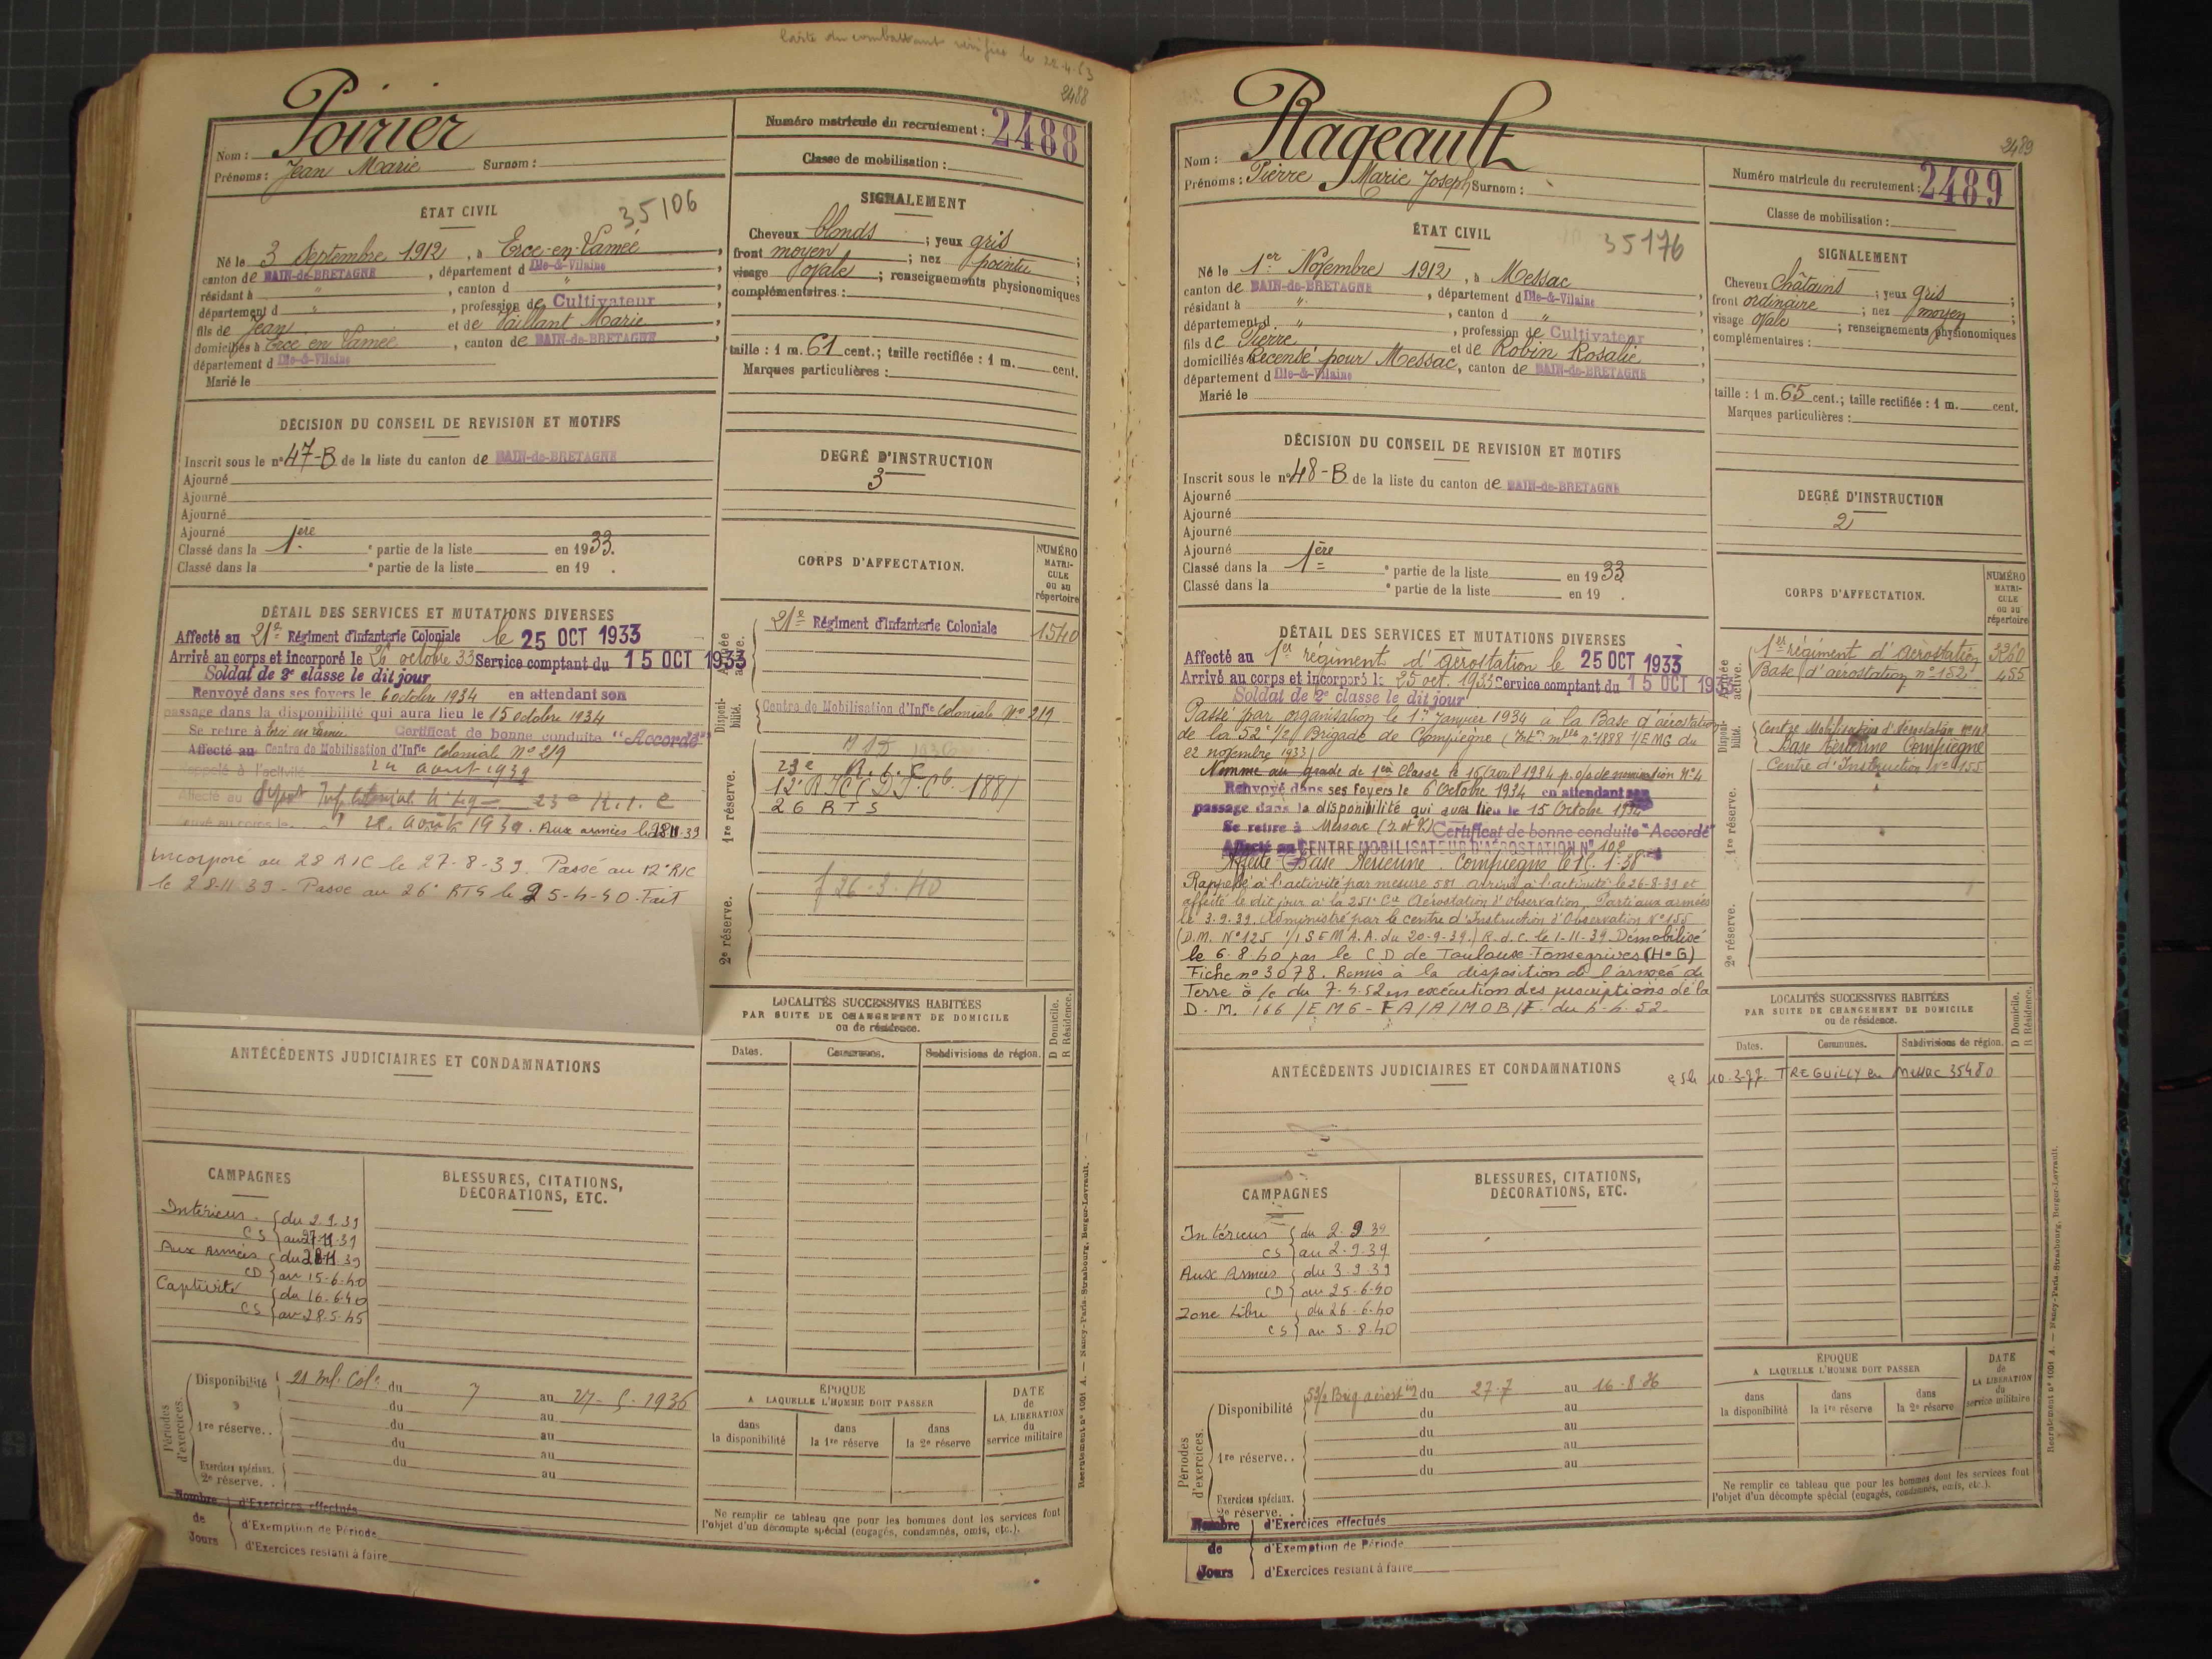 Carte du combattant vérifiée le 22.4.63
2488
Nom : Poirier
Prénoms : Jean Marie Surnom :
Numéro matricule du recrutement : 2488
Classe de mobilisation :
ÉTAT CIVIL
35106
Né le 3 Septembre 1912, à Erce-en-Lamée,
canton de BAIN-de-BRETAGNE, département d Ille-&-Vilaine,
résidant à ", canton d ",
département d ", profession de Cultivateur
fils de Jean et de Vaillant Marie,
domiciliés à Erce en Lamée, canton de BAIN-de-BRETAGNE,
département d Ille-&-Vilaine
Marié le
SIGNALEMENT
Cheveux blonds ; yeux gris ;
front moyen ; nez pointu ;
visage ovale ; renseignements physionomiques
complémentaires :
taille : 1 m. 61 cent.; taille rectifiée : 1 m. cent.
Marques particulières :
DÉCISION DU CONSEIL DE REVISION ET MOTIFS
Inscrit sous le n° 47-B de la liste du canton de BAIN-de-BRETAGNE
Ajourné
Ajourné
Ajourné
Ajourné
Classé dans la 1ere e partie de la liste en 1933.
Classé dans la e partie de la liste en 19 .
DEGRÉ D'INSTRUCTION
3
DÉTAIL DES SERVICES ET MUTATIONS DIVERSES
Affecté au 21e Régiment d'Infanterie Coloniale le 25 OCT 1933
Arrivé au corps et incorporé le 26 octobre 33 Service comptant du 15 OCT 1933
Soldat de 2e classe le dit jour
Renvoyé dans ses foyers le 6 octobre 1934 en attendant son
passage dans la disponibilité qui aura lieu le 15 octobre 1934
Se retire à Ercé en Lamée Certificat de bonne conduite "Accordé"
Affecté au Centre de Mobilisation d'Infie Coloniale N° 219
Rappelé à l'activité 24 août 1939
Affecté au Dépôt Inf. Colonial N° 29 23e R.I.C
août 1939. Aux armées le 28.11.39
Incorporé au 28 RIC le 27-8-39. Passé au 12e RIC
le 28-11-39 - Passé au 26e RTS le 25-4-40 - Fait
CORPS D'AFFECTATION.
NUMÉRO MATRICULE ou au répertoire
Armée active.
21e Régiment d'Infanterie Coloniale 1540
Disponibilité.
Centre de Mobilisation d'Infie Coloniale N° 219
1re réserve.
23e R.I.C
1881
26 RTS
2e réserve.
26-3-40
LOCALITÉS SUCCESSIVES HABITÉES
PAR SUITE DE CHANGEMENT DE DOMICILE
ou de résidence.
D Domicile. R Résidence.
Dates. Communes. Subdivisions de région.
ANTÉCÉDENTS JUDICIAIRES ET CONDAMNATIONS
CAMPAGNES
BLESSURES, CITATIONS,
DÉCORATIONS, ETC.
Intérieur. du 2.9.39
CS au 27-11-39
Aux Armées du 28-11-39
CD au 15-6-40
Captivité du 16-6-40
CS au 28-5-45
Périodes d'exercices.
Disponibilité 21 Inf. Cole du 7 au 27-5-1936
du au
1re réserve.. du au
du au
du au
Exercices spéciaux.
2e réserve. .
Nombre de Jours
d'Exercices effectués
d'Exemption de Période
d'Exercices restant à faire
ÉPOQUE
A LAQUELLE L'HOMME DOIT PASSER
dans la disponibilité
dans la 1re réserve
dans la 2e réserve
DATE de LA LIBÉRATION du service militaire
Ne remplir ce tableau que pour les hommes dont les services font
l'objet d'un décompte spécial (engagés, condamnés, omis, etc.).
Recrutement n° 1061 A. — Nancy-Paris-Strasbourg, Berger-Levrault.
2489
Nom : Rageault
Prénoms : Pierre Marie Joseph Surnom :
Numéro matricule du recrutement : 2489
Classe de mobilisation :
ÉTAT CIVIL
35176
Né le 1er Novembre 1912, à Messac
canton de BAIN-de-BRETAGNE, département d Ille-&-Vilaine
résidant à ", canton d ",
département d ", profession de Cultivateur
fils de Pierre et de Robin Rosalie,
domiciliés Recensé pour Messac, canton de BAIN-de-BRETAGNE,
département d Ille-&-Vilaine
Marié le
SIGNALEMENT
Cheveux châtains ; yeux gris ;
front ordinaire ; nez moyen ;
visage ovale ; renseignements physionomiques
complémentaires :
taille : 1 m. 65 cent.; taille rectifiée : 1 m. cent.
Marques particulières :
DÉCISION DU CONSEIL DE REVISION ET MOTIFS
Inscrit sous le n° 48-B de la liste du canton de BAIN-de-BRETAGNE
Ajourné
Ajourné
Ajourné
Ajourné
Classé dans la 1ère e partie de la liste en 1933
Classé dans la e partie de la liste en 19 .
DEGRÉ D'INSTRUCTION
2
DÉTAIL DES SERVICES ET MUTATIONS DIVERSES
Affecté au 1er régiment d'aérostation le 25 OCT 1933
Arrivé au corps et incorporé le 25 oct. 1933 Service comptant du 15 OCT 1933
Soldat de 2e classe le dit jour
Passé par organisation le 1er Janvier 1934 à la Base d'aérostation
de la 52e 1/2 Brigade de Compiègne n° 1898 1/EMG du
22 novembre 1933)
Nommé au grade de 1ère Classe le 16 Avril 1934 p. o/s de nomination N° 4
Renvoyé dans ses foyers le 6 Octobre 1934 en attendant son
passage dans la disponibilité qui aura lieu le 15 Octobre 1934
Se retire à Messac (I et V) Certificat de bonne conduite "Accordé"
Affecté au CENTRE MOBILISATEUR D'AÉROSTATION N° 102
Affecté Base Aérienne Compiègne le 15.1.38
Rappelé à l'activité par mesure 581 arrivé à l'activité le 26-8-39 et
affecté le dit jour à la 251e Cie Aérostation d'Observation. Parti aux armées
le 3.9.39. Administré par le centre d'Instruction d'Observation N° 155
(D.M. N° 125 1/1 S E M A.A. du 20-9-39.) R.d.C. le 1-11-39 Démobilisé
le 6-8-40 par le C D de Toulouse-Fonsegrives (H-G)
Fiche n° 3078. Remis à la disposition de l'armée de
Terre à /c du 7-4-52 en exécution des prescriptions de la
D.M. 166/EMG-FA/A/MOB/F du 4-4-52.
CORPS D'AFFECTATION.
NUMÉRO MATRICULE ou au répertoire
Armée active.
1er régiment d'aérostation 3260
Base d'aérostation n° 152 455
Disponibilité.
Centre Mobilisateur d'Aérostation N° 102
Base Aérienne Compiègne
Centre d'Instruction N° 155
1re réserve.
2e réserve.
LOCALITÉS SUCCESSIVES HABITÉES
PAR SUITE DE CHANGEMENT DE DOMICILE
ou de résidence.
D Domicile. R Résidence.
Dates. Communes. Subdivisions de région.
10.3.77 TREGUILLY en Messac 35480
ANTÉCÉDENTS JUDICIAIRES ET CONDAMNATIONS
CAMPAGNES
BLESSURES, CITATIONS,
DÉCORATIONS, ETC.
Intérieur du 2.9.39
CS au 2-9.39
Aux Armées du 3-9-39
CD au 25-6-40
Zone Libre du 26-6-40
CS au 5-8-40
Périodes d'exercices.
Disponibilité 52 1/2 Brig. aérostion du 27.7 au 16-8-36
du au
du au
1re réserve.. du au
du au
Exercices spéciaux.
2e réserve. .
Nombre de Jours
d'Exercices effectués
d'Exemption de Période
d'Exercices restant à faire
ÉPOQUE
A LAQUELLE L'HOMME DOIT PASSER
dans la disponibilité
dans la 1re réserve
dans la 2e réserve
DATE de LA LIBÉRATION du service militaire
Ne remplir ce tableau que pour les hommes dont les services font
l'objet d'un décompte spécial (engagés, condamnés, omis, etc.).
Recrutement n° 1061 A. — Nancy-Paris-Strasbourg, Berger-Levrault.